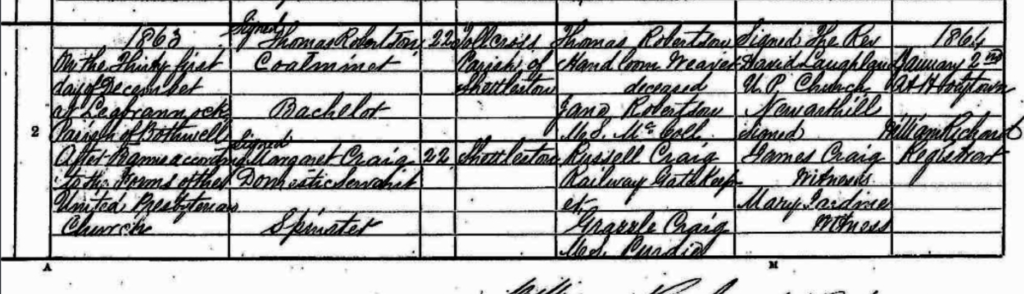 2
1863
On the Thirty first
day of December
at Legbrannock
Parish of Bothwell
After Banns according
to the Forms of the
United Presbyterian
Church
Signed
Thomas Robertson
Coalminer
Bachelor
signed
Margaret Craig
Domestic Servant
Spinster
22
22
Tollcross
Parish of
Shettleston
Shettleston
Thomas Robertson
Handloom Weaver
deceased
Jane Robertson
M.S. McColl
Russell Craig
Railway Gatekeeper
et
Grazzle Craig
M.S. Purdie
Signed The Rev
David Laughland
U. P. Church
Newarthill
signed
James Craig
Witness
Mary Jardine
Witness
1864
January 2nd
At Holytown
William Richard
Registrar
A
M